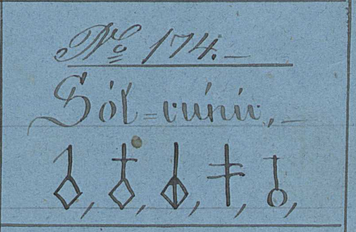 No 174.–
Sól=rúnir,–